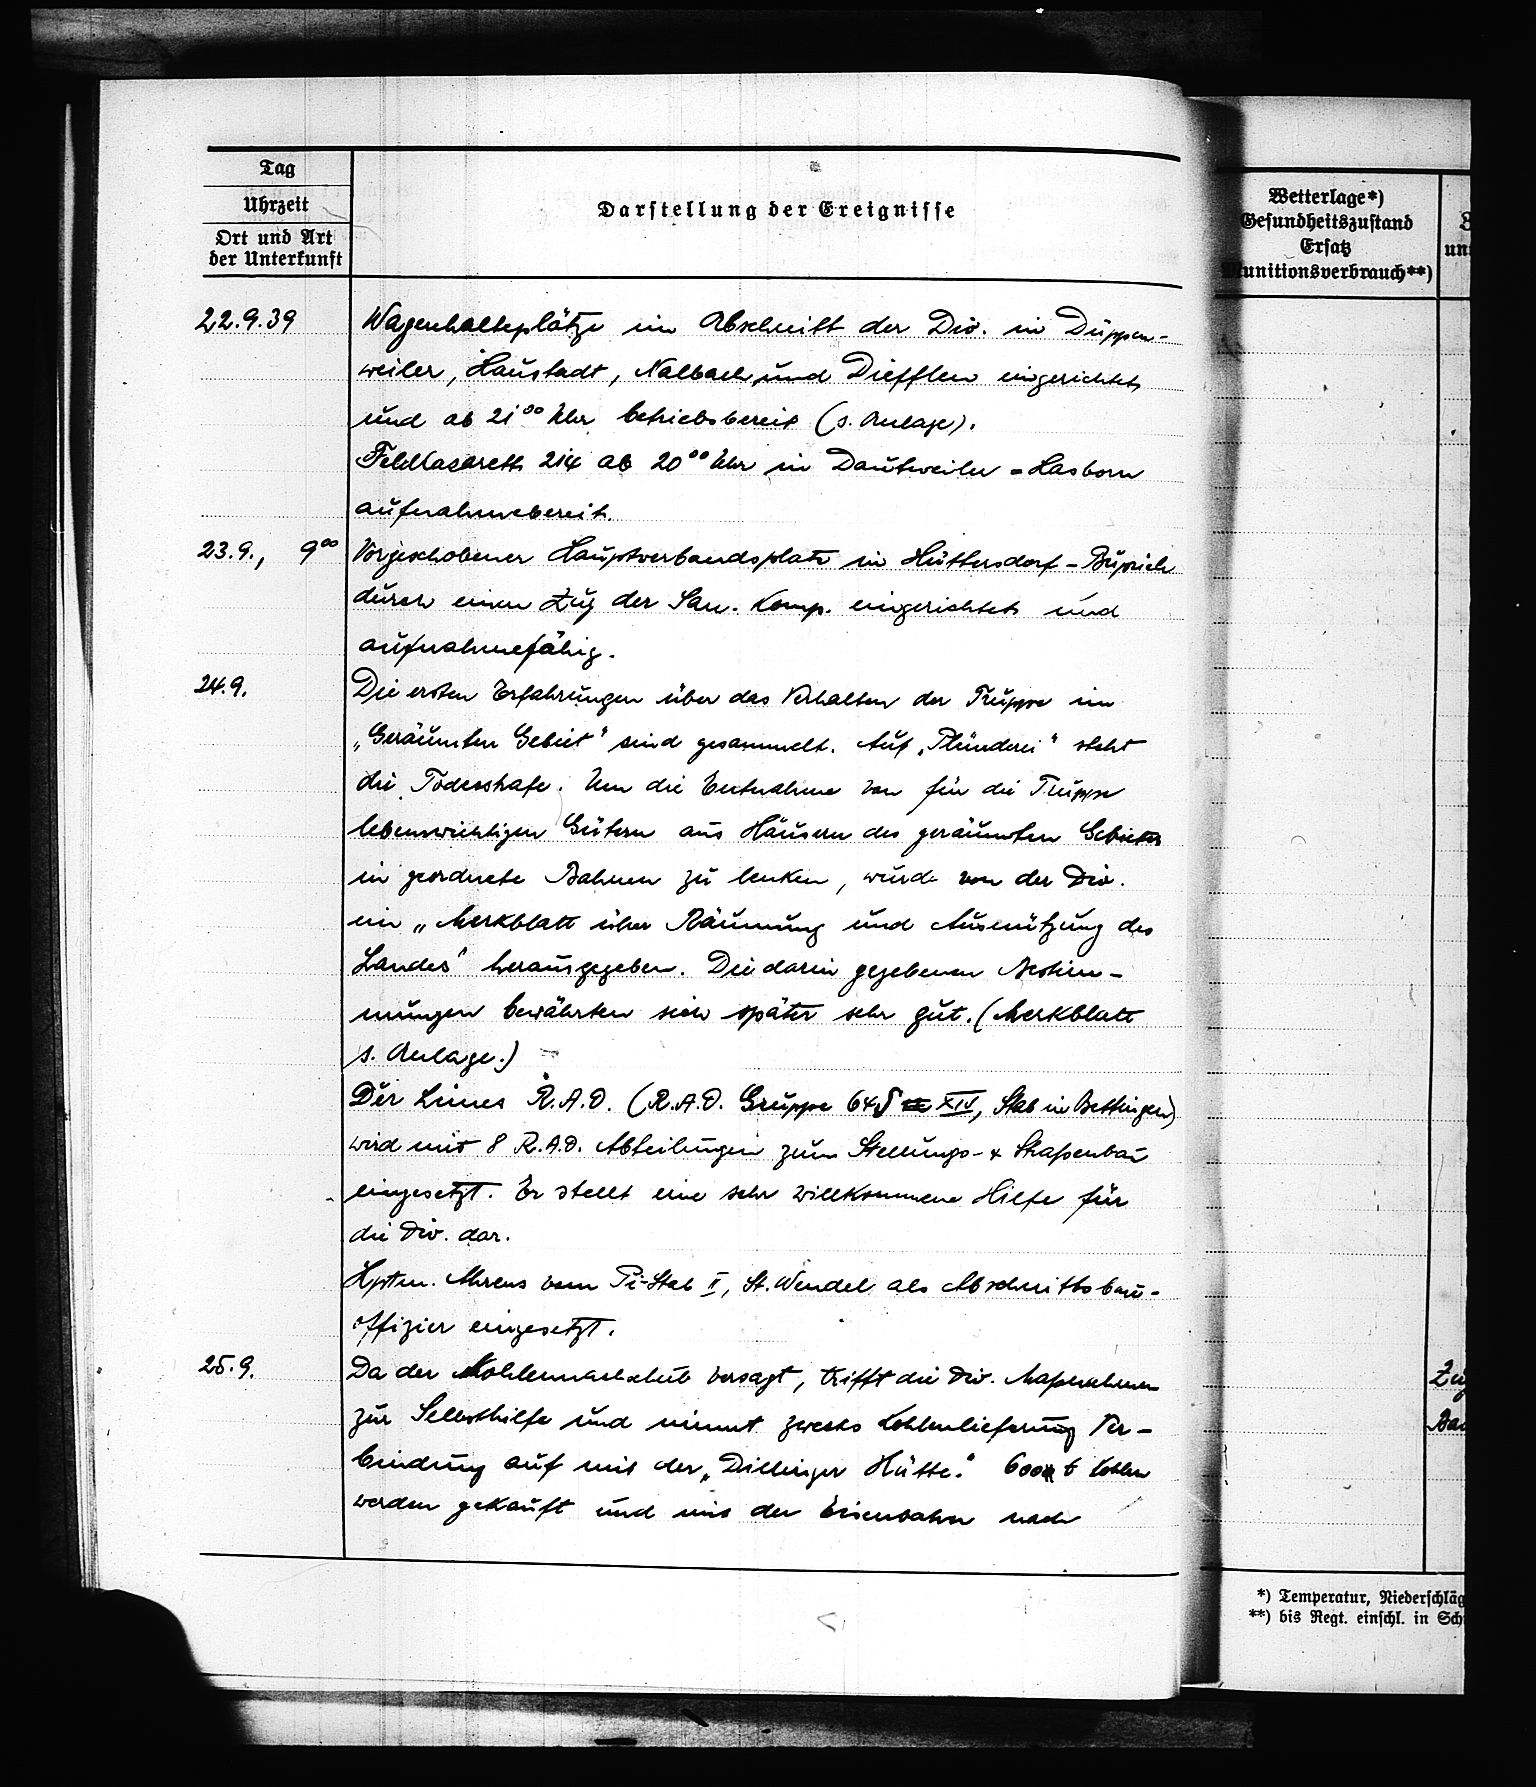 Tag
Uhrzeit
Ort und Art
der Unterkunft
Darstellung der Ereignisse
22.9.39
Wagenhalteplätze im Abschnitt der Div. in Düppen-
weiler, Haustadt, Nalbach und Diefflen eingerichtet
und ab 21⁰⁰ Uhr betriebsbereit (s. Anlage).
Feldlazarett 214 ab 20⁰⁰ Uhr in Dautweiler = Hasborn
aufnahmebereit.
23.9., 9⁰⁰
Vorgeschobener Hauptverbandsplatz in Hüttersdorf - Büprich
durch einen Zug der San. Komp. eingerichtet und
aufnahmefähig.
24.9.
Die ersten Erfahrungen über das Verhalten der Truppe im
„Geräumten Gebiet" sind gesammelt. Auf „Plünderei" steht
die Todesstrafe. Um die Entnahme von für die Truppe
lebenswichtigen Gütern aus Häusern des geräumten Gebietes
in geordnete Bahnen zu lenken, wurde von der Div.
ein „Merkblatt über Räumung und Ausnützung des
Landes" herausgegeben. Die darin gegebenen Bestim-
mungen bewährten sich später sehr gut. (Merkblatt
s. Anlage.)
Der Limes R.A.D. (R.A.D. Gruppe XIV, Stab in Bettingen)
wird mit 8 R.A.D. Abteilungen zum Stellungs- & Straßenbau
eingesetzt. Er stellt eine sehr willkommene Hilfe für
die Div. dar.
Hptm. Ahrens vom Pi-Stab II, St. Wendel als Abschnittsbau-
offizier eingesetzt.
25.9.
Da der Kohlennachschub versagt, trifft die Div. Maßnahmen
zur Selbsthilfe und nimmt zwecks Kohlenlieferung Ver-
bindung auf mit der „Dillinger Hütte." 600 t Kohlen
werden gekauft und mit der Eisenbahn nach
Wetterlage*)
Gesundheitszustand
Ersatz
Munitionsverbrauch**)
*) Temperatur, Niederschläg
**) bis Regt. einschl. in Sch